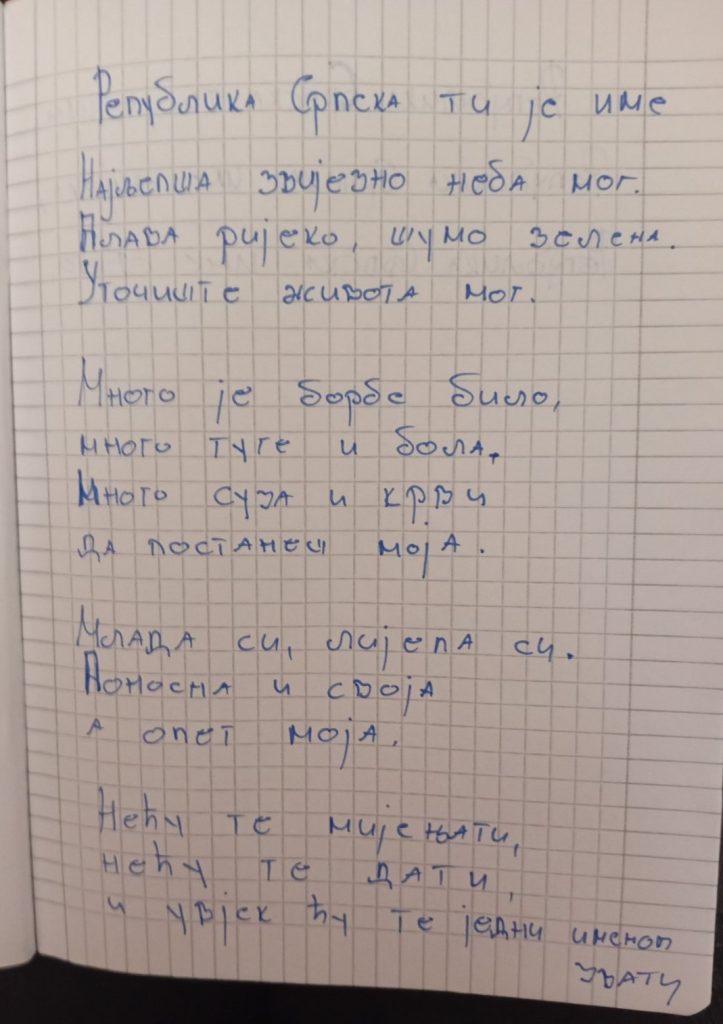 Република Српска ти је име
Најљепша звијездо неба мог.
Плава ријеко, шумо зелена.
Уточиште живота мог.
Много је борбе било,
много туге и бола,
Много суза и крви
да постанеш моја.
Млада си, лијепа си.
Поносна и своја
а опет моја.
Нећу те мијењати,
нећу те дати,
и увјек ћу те једни именом
звати